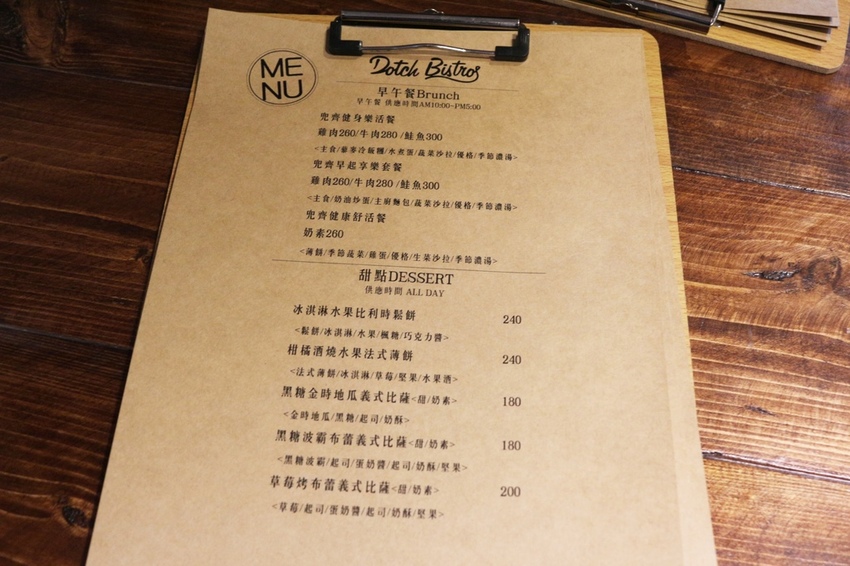 ME
NU
Dotch Bistros
早午餐Brunch
早午餐 供應時間AM10:00~PM5:00
兜齊健身樂活餐
雞肉260/牛肉280 /鮭魚300
<主食/藜麥冷飯糰/水煮蛋/蔬菜沙拉/優格/季節濃湯>
兜齊早起享樂套餐
雞肉260/牛肉280 /鮭魚300
<主食/奶油炒蛋/主廚麵包/蔬菜沙拉/優格/季節濃湯>
兜齊健康舒活餐
奶素260
<薄餅/季節蔬菜/雞蛋/優格/生菜沙拉/季節濃湯>
甜點DESSERT
供應時間 ALL DAY
冰淇淋水果比利時鬆餅 240
<鬆餅/冰淇淋/水果/楓糖/巧克力醬>
柑橘酒燒水果法式薄餅 240
<法式薄餅/冰淇淋/草莓/堅果/水果酒>
黑糖金時地瓜義式比薩<甜/奶素> 180
<金時地瓜/黑糖/起司/奶酥>
黑糖波霸布蕾義式比薩<甜/奶素> 180
<黑糖波霸/起司/蛋奶醬/起司/奶酥/堅果>
草莓烤布蕾義式比薩<甜/奶素> 200
<草莓/起司/蛋奶醬/起司/奶酥/堅果>